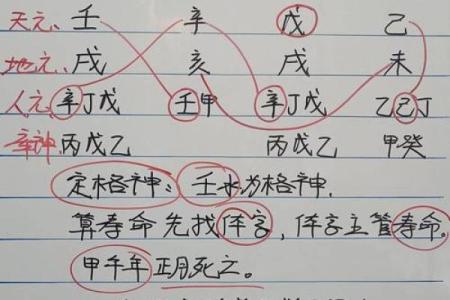 天元、壬 辛 戊 己
地元、戌 亥 戌 未
人元、辛丁戊 壬甲 辛丁戊 乙己丁
丙戊乙 丙戊乙 甲癸
定格神：壬水为格神.
算寿命先找倖字，倖字主管寿命。
甲午年正月死之。